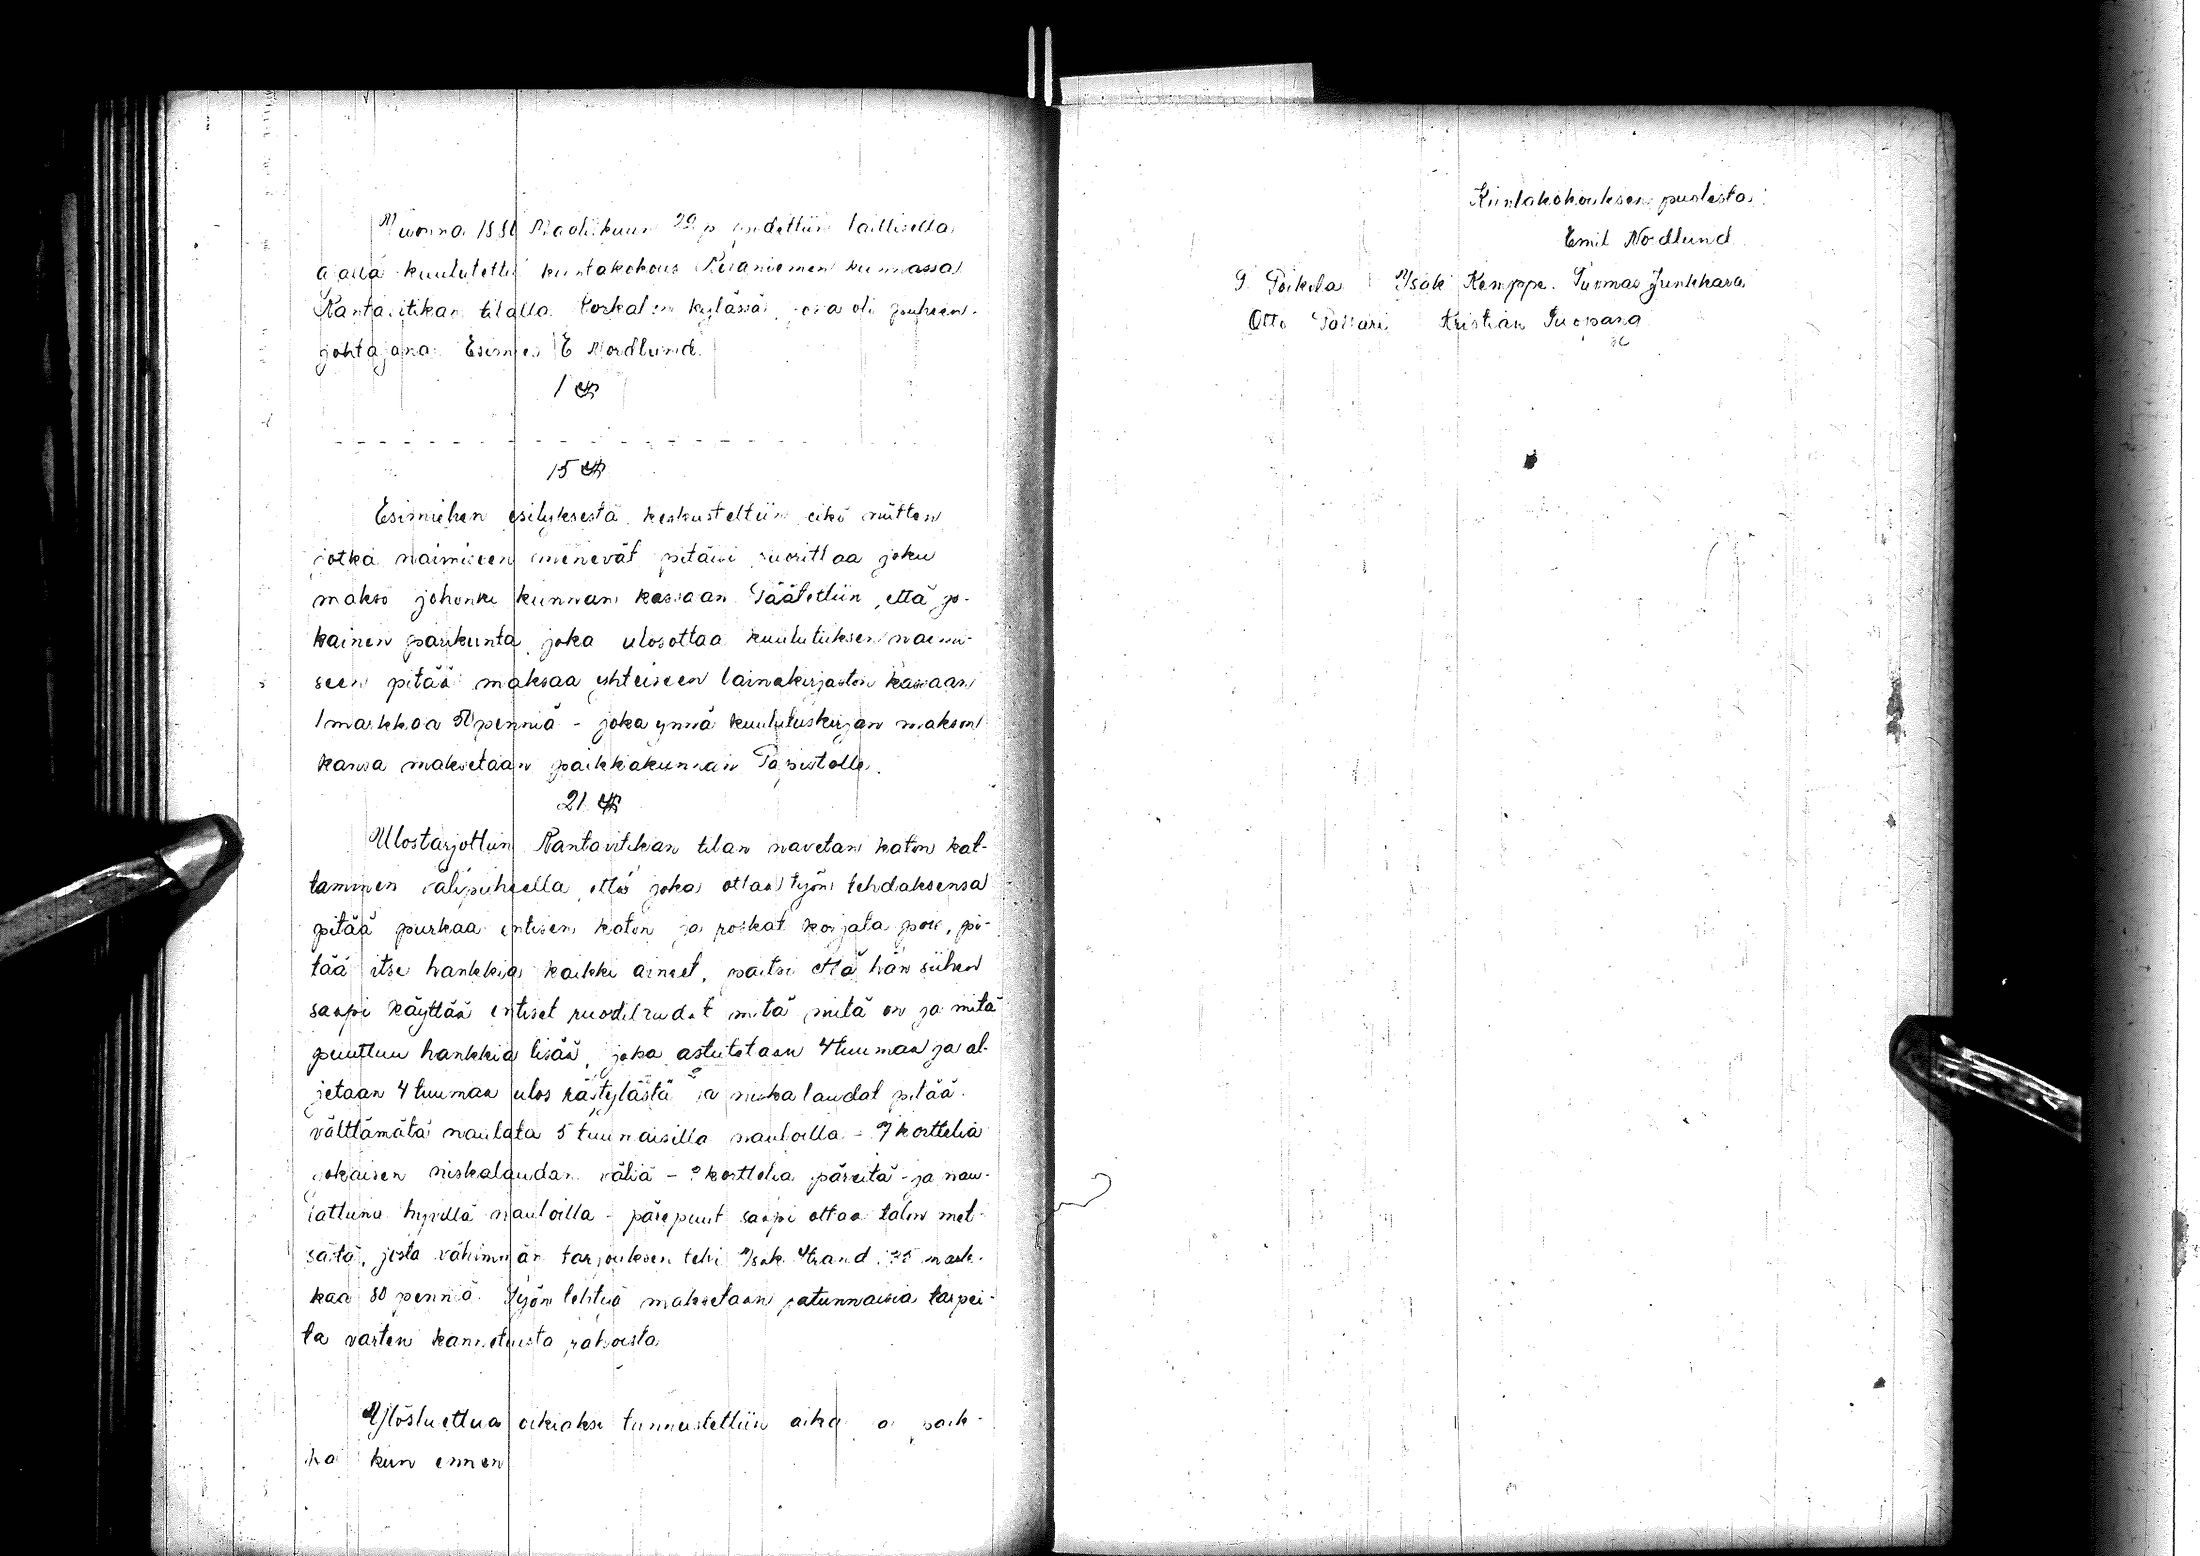 Vuonna 1881 Maaliskuun 29 p pidettiin laillisella
ajalla kuulutettu kuntakokous Keuaniemen kunnassa
Rantavitikan tilalla Korkalon kylässä, jossa oli puheen-
johtajana Esimies E Nordlund.
1 §
- - - - - - - - - - - - - - - - - - - -
15 §
Esimiehen esityksestä keskusteltiin eikö niitten
jotka naimiseen menevät pitäisi suorittaa joku
makso johonki kunnan kassaan Päätettiin, että jo-
kainen pariskunta, joka ulosottaa kuulutuksen naimi-
seen pitää maksaa yhteiseen lainakirjaston kassaan
1 markkaa 50 penniä - joka ynnä kuulutuskirjan makson
kansa maksetaan paikkakunnan Papistolle.
21 §
Ulostarjottiin Rantavitikan tilan navetan katon kat-
taminen välipuheella, että joka ottaa työn tehdäksensä
pitää purkaa entisen katon ja roskat korjata pois, pi-
tää itse hankkia kaikki aineet, paitsi että hän siihen
saapi käyttää entiset ruodelaudat mitä niitä on ja mitä
puuttuu hankkia lisää, joka astutetaan 4 tuumaa ja al-
jetaan 4 tuumaa ulos rästylästä ja niskalaudat pitää
välttämätä naulata 5 tuumaisilla nauloilla - 7 korttelia
jokaisen niskalaudan väliä - korttelia päreitä - ja nau-
lattuna hyvillä nauloilla - pärepuut saapi ottaa talon met-
sästä, josta vähimmän tarjouksen teki Isak Strand 35 mark-
kaa 80 penniä. Työn tehtyä maksetaan satunnaisia tarpei-
ta varten kannetuista rahoista
Ylösluettua oikiaksi tunnustettiin aika ja paik-
ka kun ennen
Kuntakokouksen puolesta:
Emil Nordlund
P. Poikela Isak Kemppe. Tuomas Junkkara
Otto Pallari Kristian Suopara